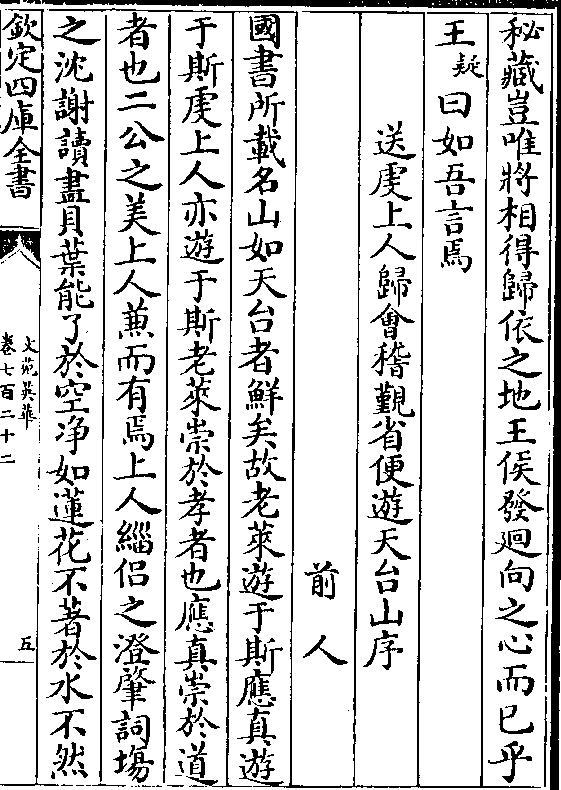 秘藏豈唯將相得歸依之地王侯發迴向之心而已乎
王疑曰如吾言焉
送虔上人歸會稽覲省便遊天台山序
前人
國書所載名山如天台者鮮矣故老萊遊于斯應真遊
于斯虔上人亦遊于斯老萊崇於孝者也應真崇於道
者也二公之美上人兼而有焉上人緇侣之澄肇詞塲
之沈謝讀盡貝葉能了於空净如蓮花不著於水不然
欽定四庫全書
文苑英華
卷七百二十二
五